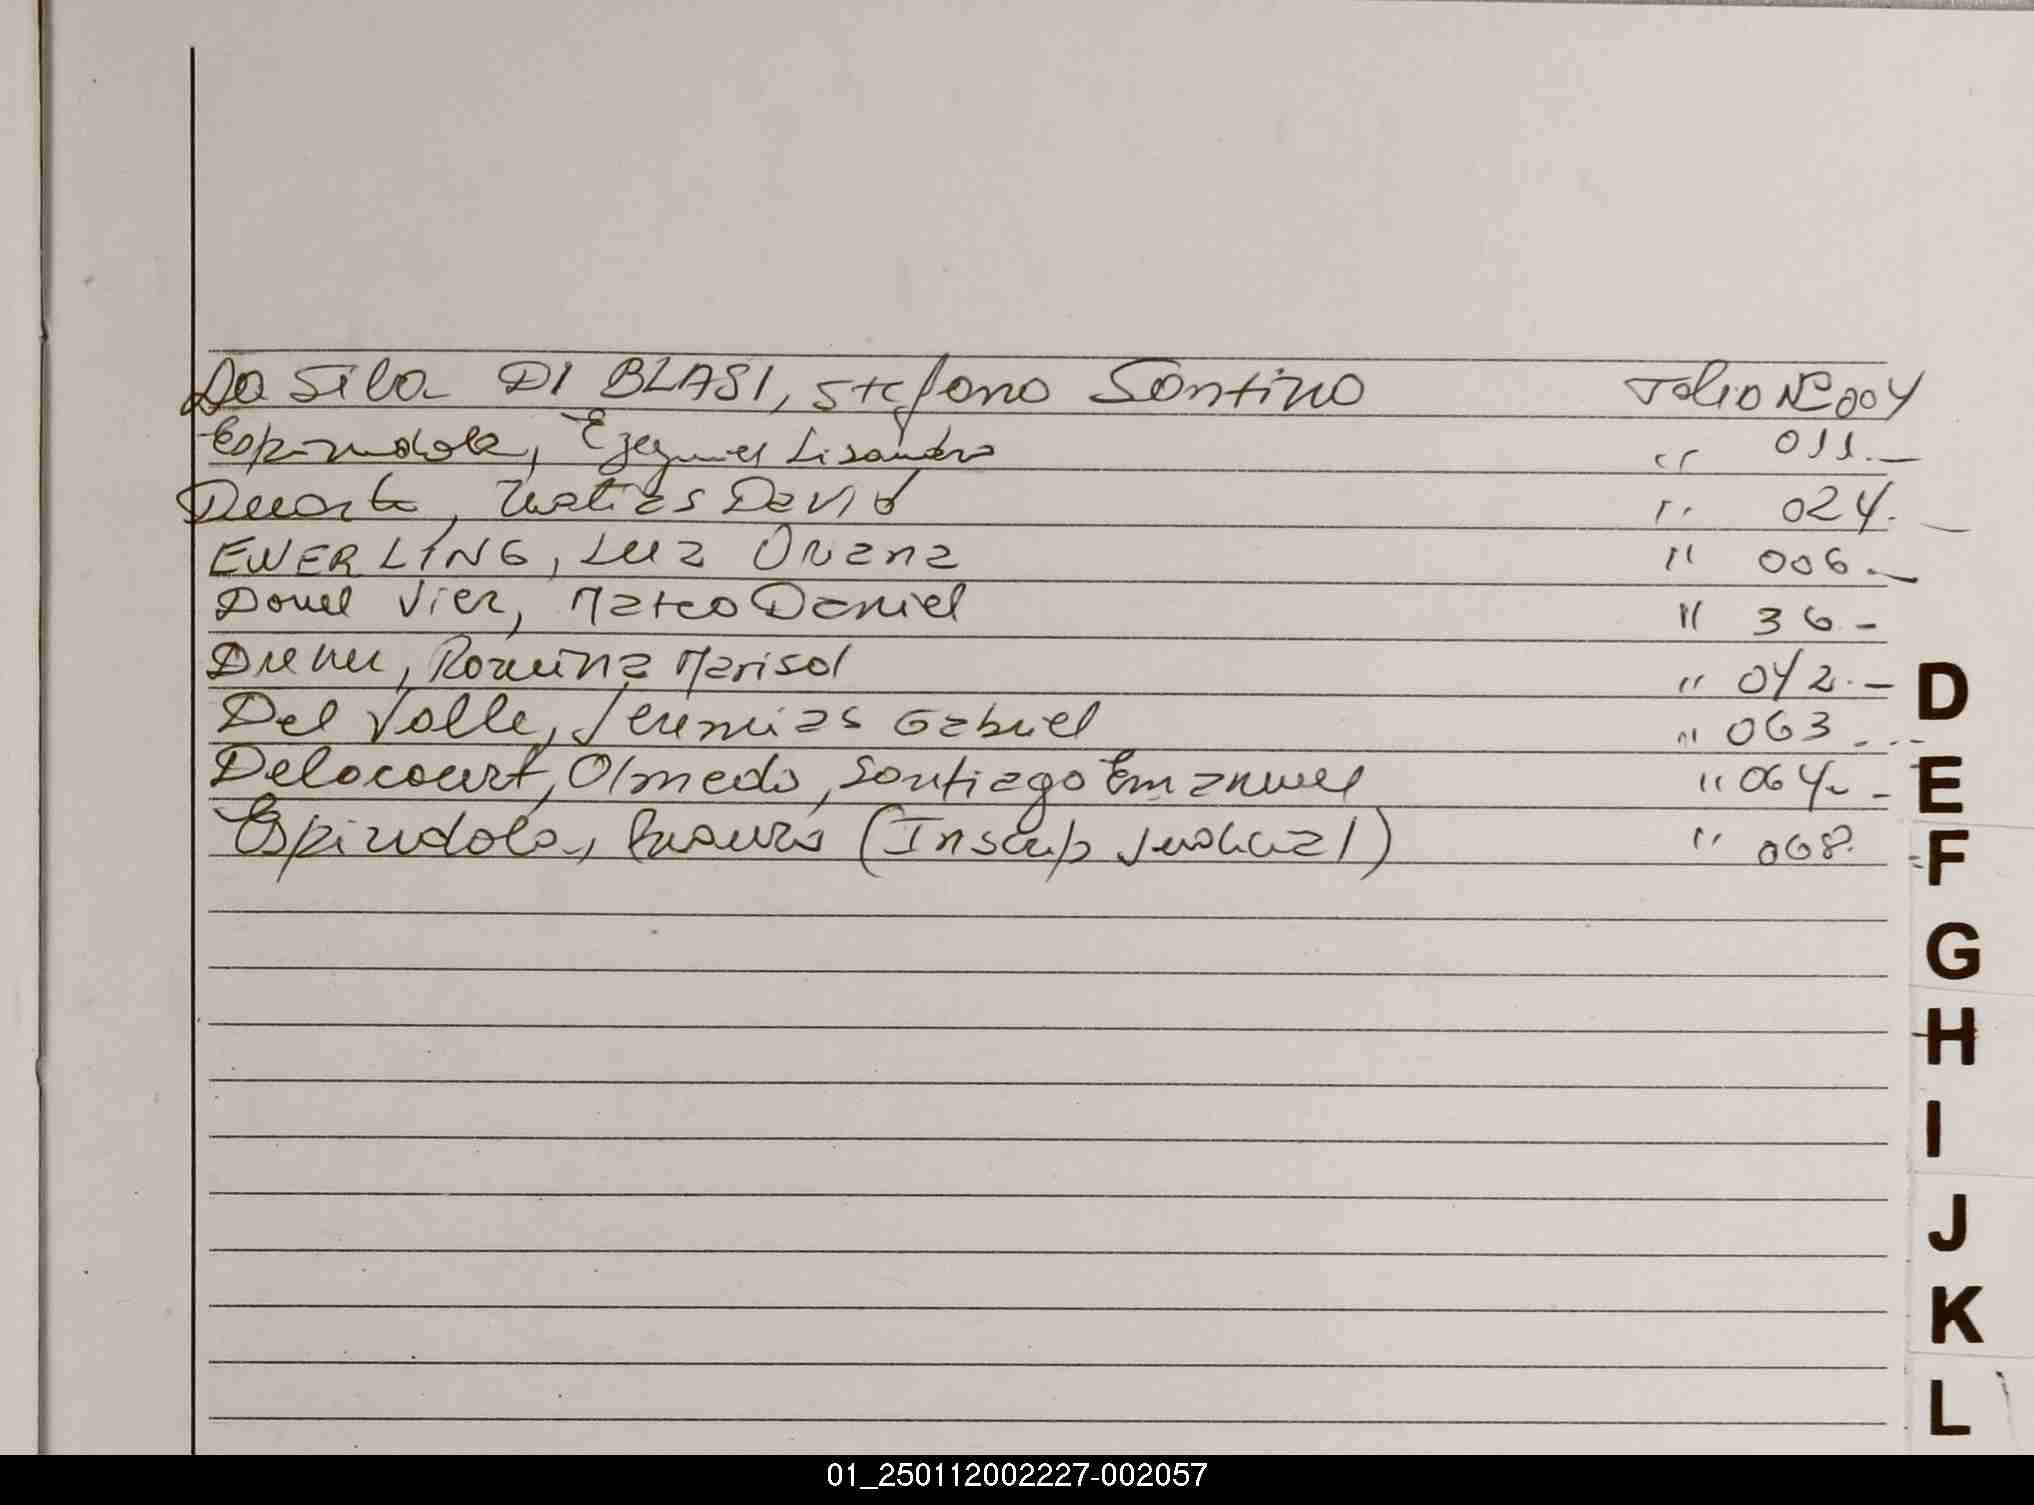 Da Silva DI BLASI, Stefano Santino Folio Nº 004
Espindola, Ezequiel Lisandro " 011.-
Duarte, Matias David " 024.-
EWERLING, Luz Oriana " 006.-
Dornel Vier, Mateo Daniel " 36.-
Romina Marisol " 042.-
Del Valle, Jeremias Gabriel " 063.-
Delacourt, Olmedo, Santiago Emanuel " 064.-
Espindola, (Inscrip Judicial) " 068.
D
E
F
G
H
I
J
K
L
01_250112002227-002057